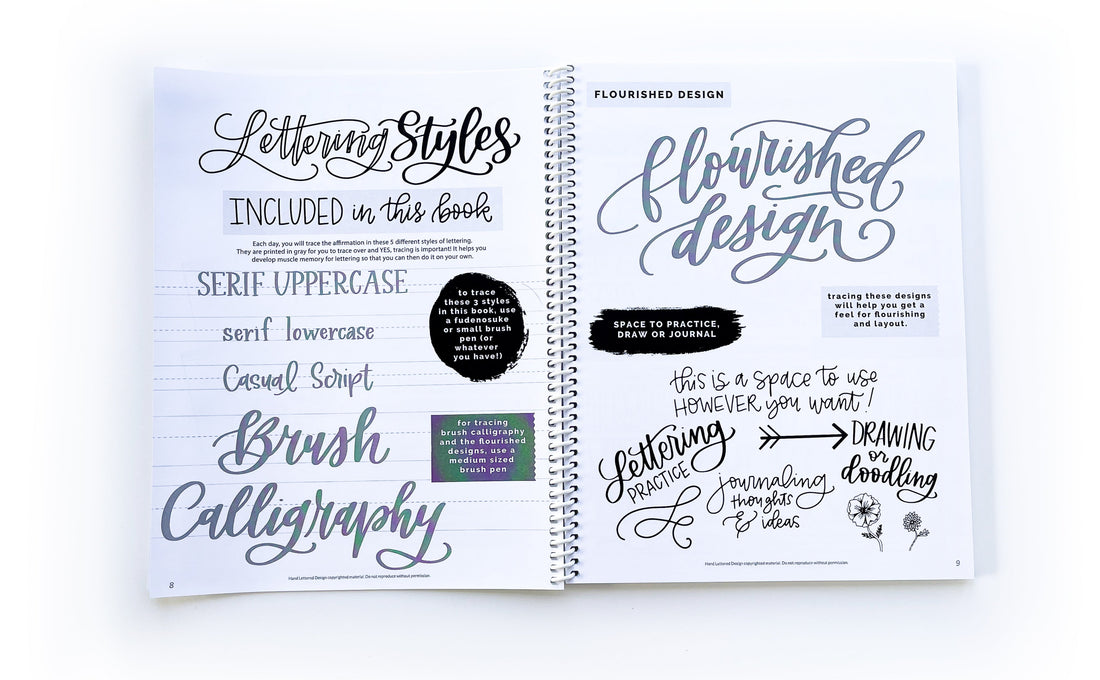 Lettering Styles
INCLUDED in this book
Each day, you will trace the affirmation in these 5 different styles of lettering.
They are printed in gray for you to trace over and YES, tracing is important! It helps you
develop muscle memory for lettering so that you can then do it on your own.
SERIF UPPERCASE
serif lowercase
Casual Script
Brush
Calligraphy
to trace
these 3 styles
in this book, use
a fudenosuke
or small brush
pen (or
whatever
you have!)
for tracing
brush calligraphy
and the flourished
designs, use a
medium sized
brush pen
Hand Lettered Design copyrighted material. Do not reproduce without permission.
8
FLOURISHED DESIGN
flourished
design
tracing these designs
will help you get a
feel for flourishing
and layout.
SPACE TO PRACTICE,
DRAW OR JOURNAL
this is a space to use
HOWEVER you want!
Lettering
PRACTICE
journaling
thoughts
& ideas
DRAWING
or
doodling
Hand Lettered Design copyrighted material. Do not reproduce without permission.
9